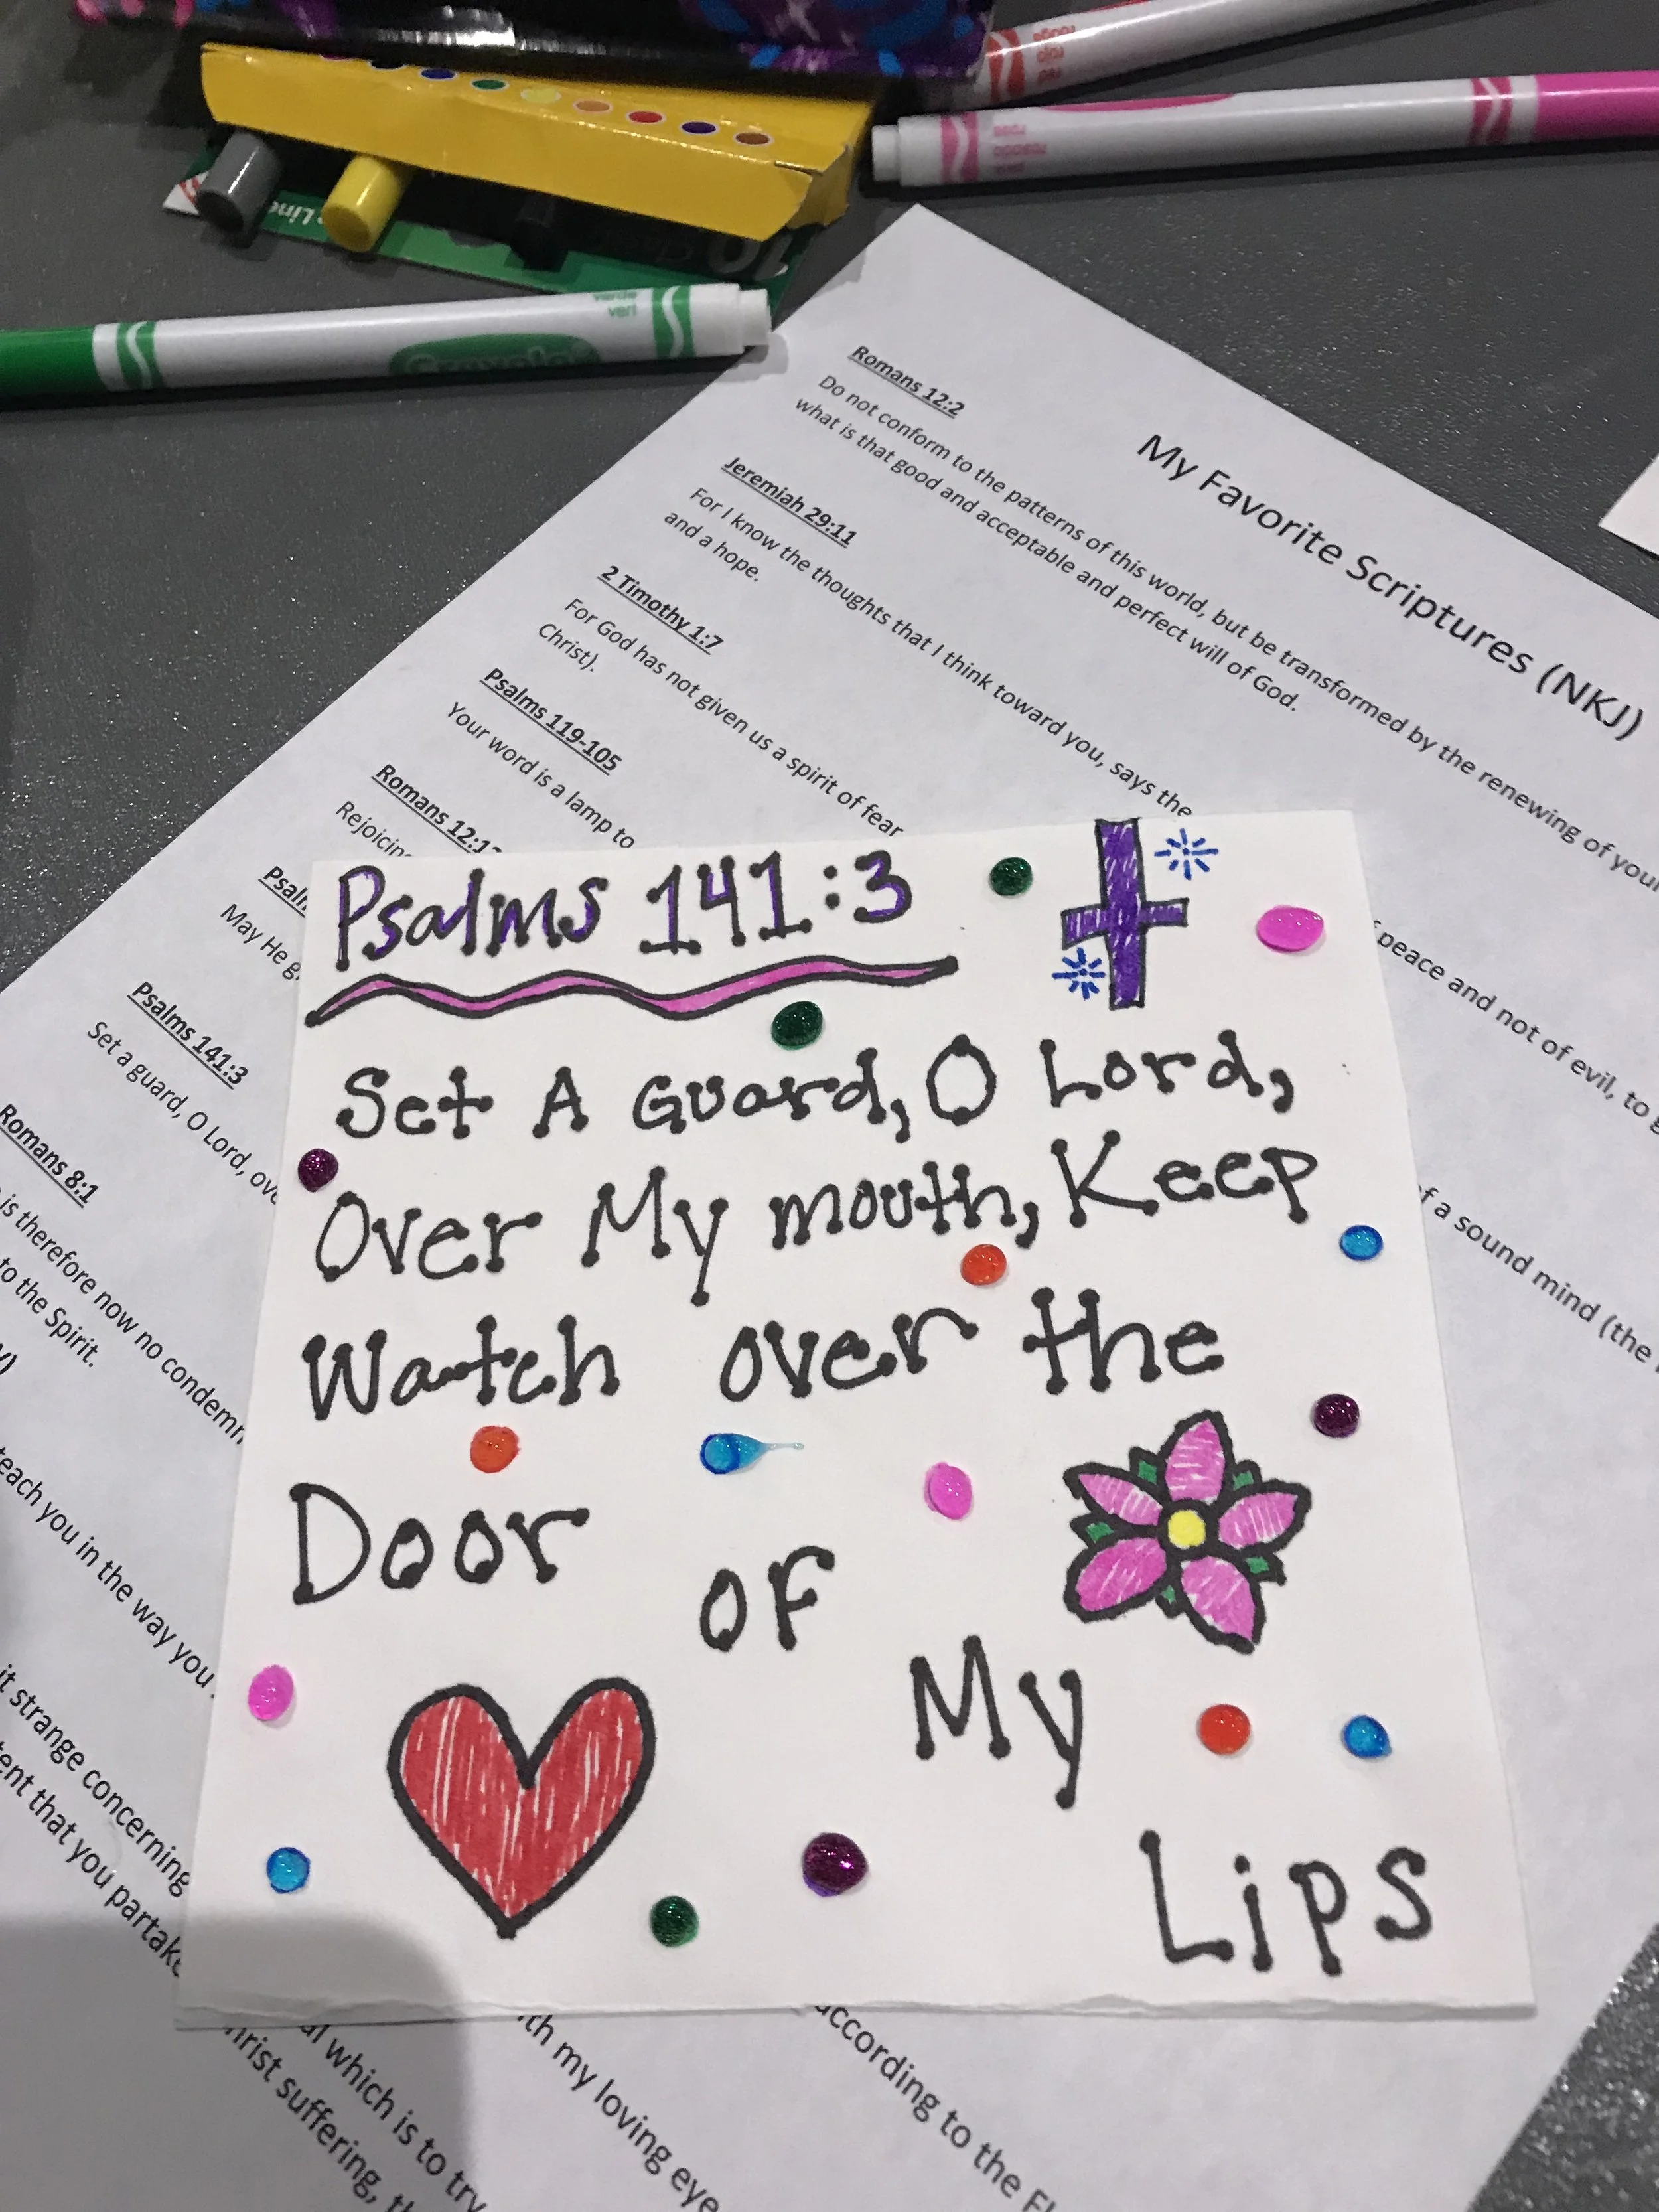 My Favorite Scriptures (NKJ)
Romans 12:2
Do not conform to the patterns of this world, but be transformed by the renewing of your
what is that good and acceptable and perfect will of God.
Jeremiah 29:11
For I know the thoughts that I think toward you, says the
peace and not of evil, to
and a hope.
2 Timothy 1:7
For God has not given us a spirit of fear
of a sound mind (the
Christ).
Psalms 119-105
Your word is a lamp to
Romans 12:12
Rejoicing
May He
Psalms 141:3
Set a guard, O Lord, ove
Romans 8:1
is therefore now no condemn
to the Spirit.
teach you in the way you
it strange concerning
ent that you partake
Psalms 141:3
Set A Guard, O Lord,
Over My mouth, Keep
Watch over the
Door
of
My
Lips
th my loving eye
according to the
al which is to try
hrist suffering,
Crayola
10